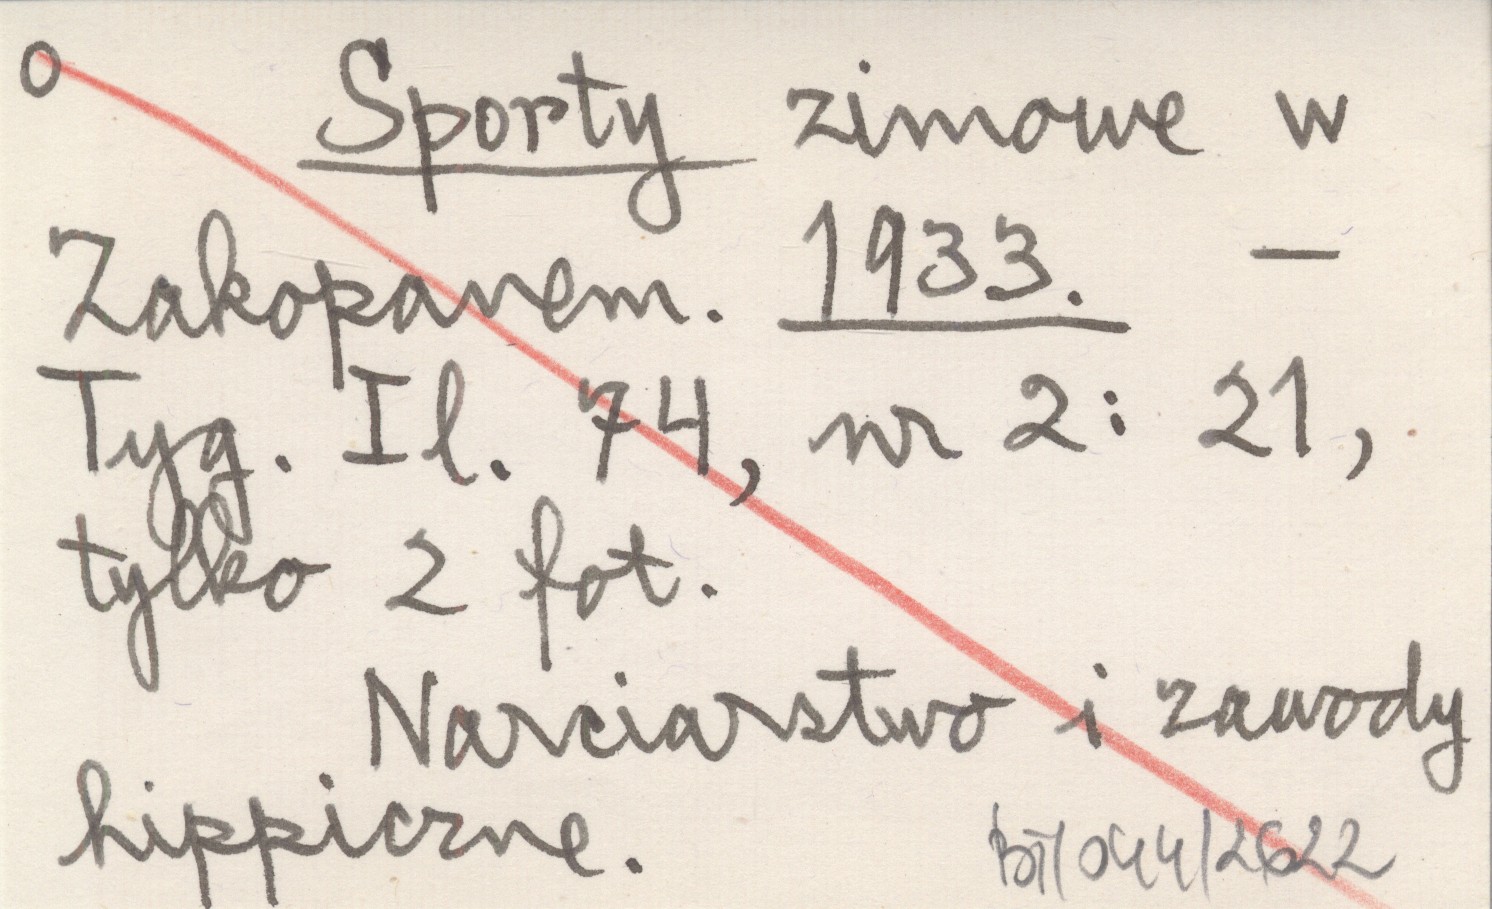 O
Sporty zimowe w
Zakopanem. 1933. —
Tyg. Il. 74, nr 2: 21,
tylko 2 fot.
Narciarstwo i zawody
hippiczne.
BT/044/2622